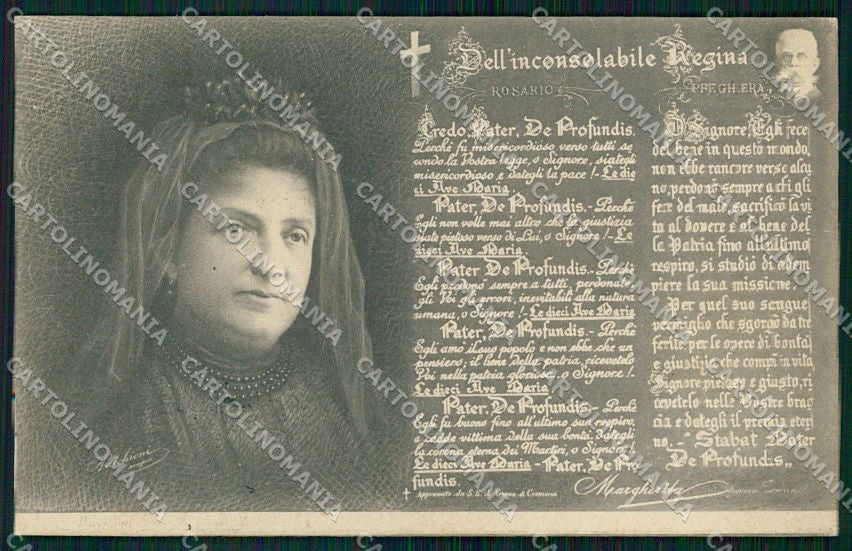 Dell'inconsolabile Regina
ROSARIO
Credo, Pater, De Profundis.
Perchè fu misericordioso verso tutti se
condo la Vostra legge, o Signore, siategli
misericordioso e dategli la pace! - Le die
ci Ave Maria.
Pater, De Profundis. - Perchè
Egli non volle mai altro che la giustizia
siate pietoso verso di Lui, o Signore! - Le
dieci Ave Maria.
Pater De Profundis. - Perchè
Egli perdonò sempre a tutti, perdonate
gli Voi gli errori, inevitabili alla natura
umana, o Signore! - Le dieci Ave Maria
Pater, De Profundis. - Perchè
Egli amò il suo popolo e non ebbe che un
pensiero; il bene della patria, ricevetelo
Voi nella patria gloriosa, o Signore! -
Le dieci Ave Maria
Pater, De Profundis. - Perchè
Egli fu buono fino all'ultimo suo respiro,
e cadde vittima della sua bontà, dategli
la corona eterna dei Martiri, o Signore! -
Le dieci Ave Maria - Pater, De Pro
fundis.
† Approvato da S. E. il Vescovo di Cremona
PREGHIERA
O Signore! Egli fece
del bene in questo mondo,
non ebbe rancore verso alcu
no, perdonò sempre a chi gli
fece del male, sacrificò la vi
ta al dovere e al bene del
la Patria fino all'ultimo
respiro, si studiò di adem
piere la sua missione.
Per quel suo sangue
vermiglio che sgorgò da tre
ferite, per le opere di bontà
e giustizia che compì in vita
Signore pietoso e giusto, ri
cevetelo nelle Vostre brac
cia e dategli il premio eter
no. - Stabat Mater
De Profundis"
Margherita
CARTOLINOMANIA